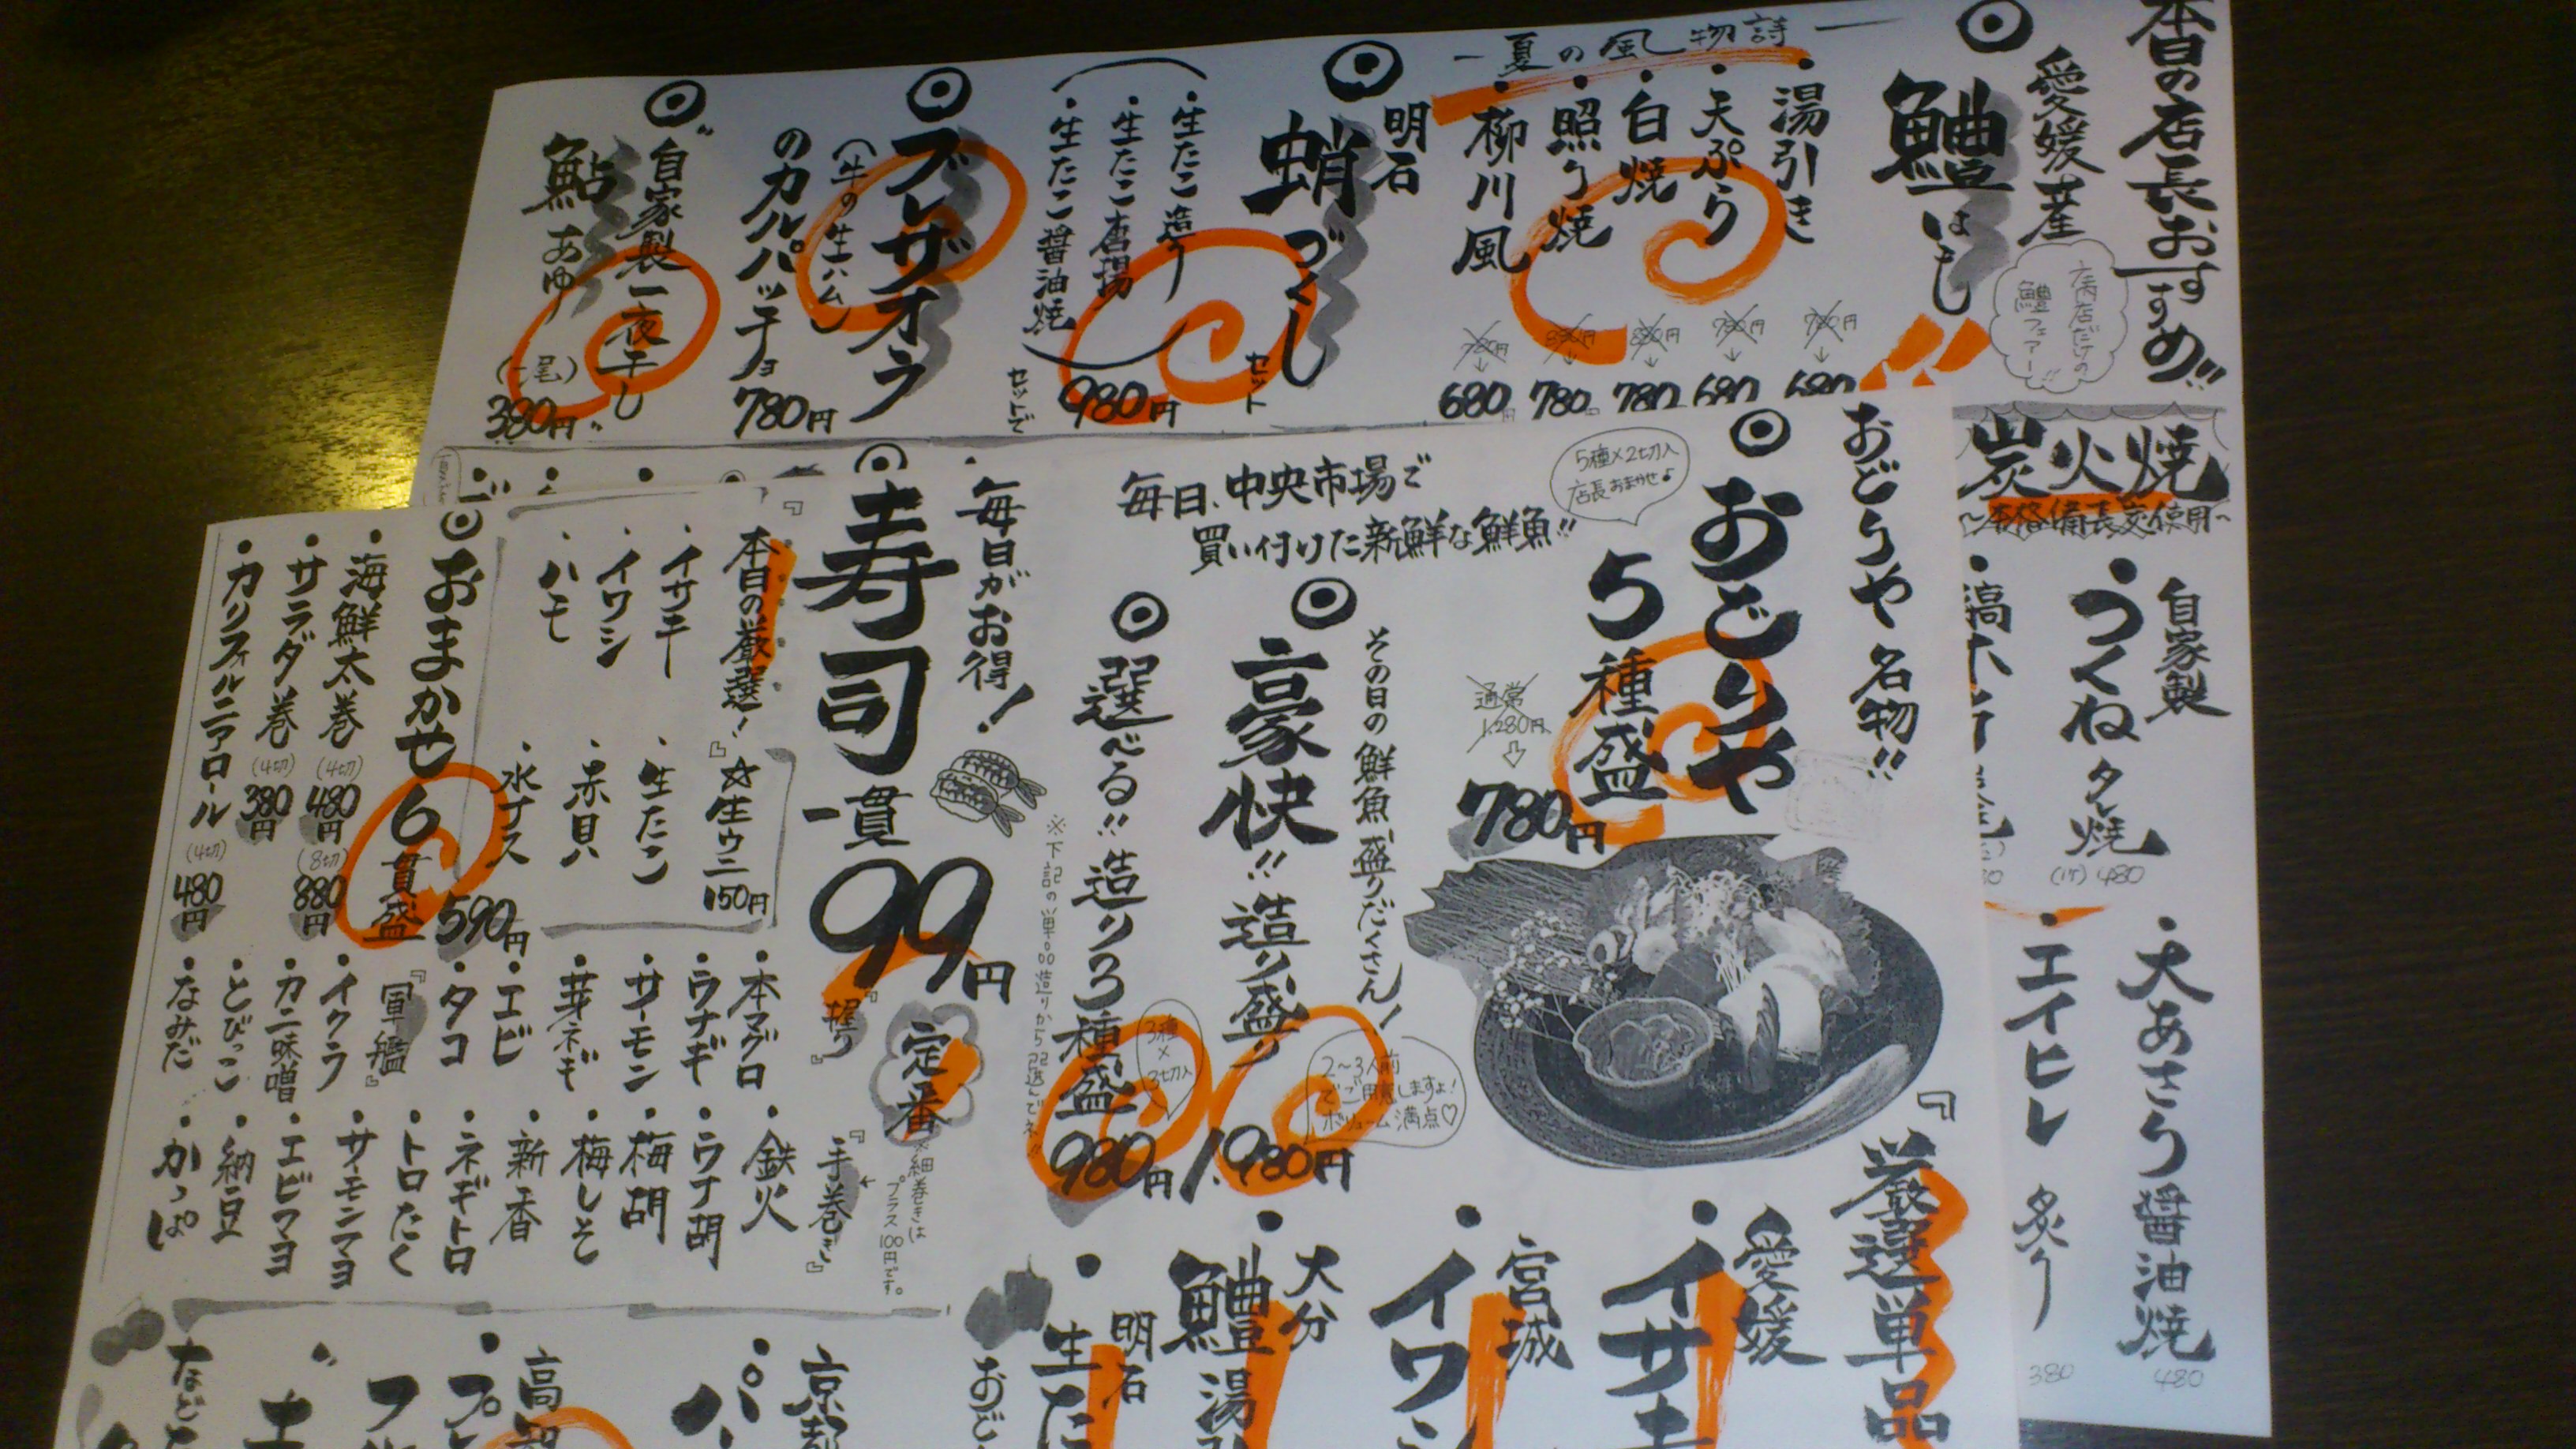 本日の店長おすすめ!!
愛媛産
鱧はも!!
当店だけの
鱧フェアー!!
ー夏の風物詩ー
・湯引き 780円→680
・天ぷら 780円→680
・白焼 880円→780
・照り焼 880円→780
・柳川風 780円→680円
明石
蛸づくし
セット
・生たこ造り
・生たこ唐揚
・生たこ醤油焼
セットで
980円
ブレザオラ
(牛の生ハム)
のカルパッチョ
780円
自家製一夜干し
鮎あゆ
(一尾)
380円
炭火焼
~本格備長炭使用~
自家製
・つくねタレ焼
(1本) 480
・大あさり醤油焼
480
・エイヒレ炙り
380
おどりや名物!!
おどりや
5種盛
5種×2切入
店長おまかせ♪
通常
1,280円
780円
毎日、中央市場で
買い付けた新鮮な鮮魚!!
その日の鮮魚盛りだくさん!
豪快!!造り盛り
2~3人前
でご用意しますよ!
ボリューム満点♡
1,980円
選べる!!造り3種盛
3種
×
3切入
980円
※下記の単品造りからお選んでネ!!
『厳選単品
愛媛
・イサキ
宮城
・イワシ
大分
・鱧湯引
明石
・生た
毎日がお得!
寿司
一貫
99円
『本日の厳選!』
・イサキ
・イワシ
・ハモ
☆生ウニ
150円
・生たこ
・赤貝
・水ナス
定番
『握り』
・本マグロ
・ウナギ
・サーモン
・芽ネギ
・エビ
・タコ
『軍艦』
・イクラ
・カニ味噌
・とびっこ
・なみだ
『手巻き』
※細巻きは
プラス100円です。
・鉄火
・ウナ胡
・梅胡
・梅しそ
・新香
・ネギトロ
・トロたく
・サーモンマヨ
・エビマヨ
・納豆
・かっぱ
おまかせ6貫盛
590円
・海鮮太巻
(4切)
480円
(8切)
880円
・サラダ巻
(4切)
380円
・カリフォルニアロール
(4切)
480円